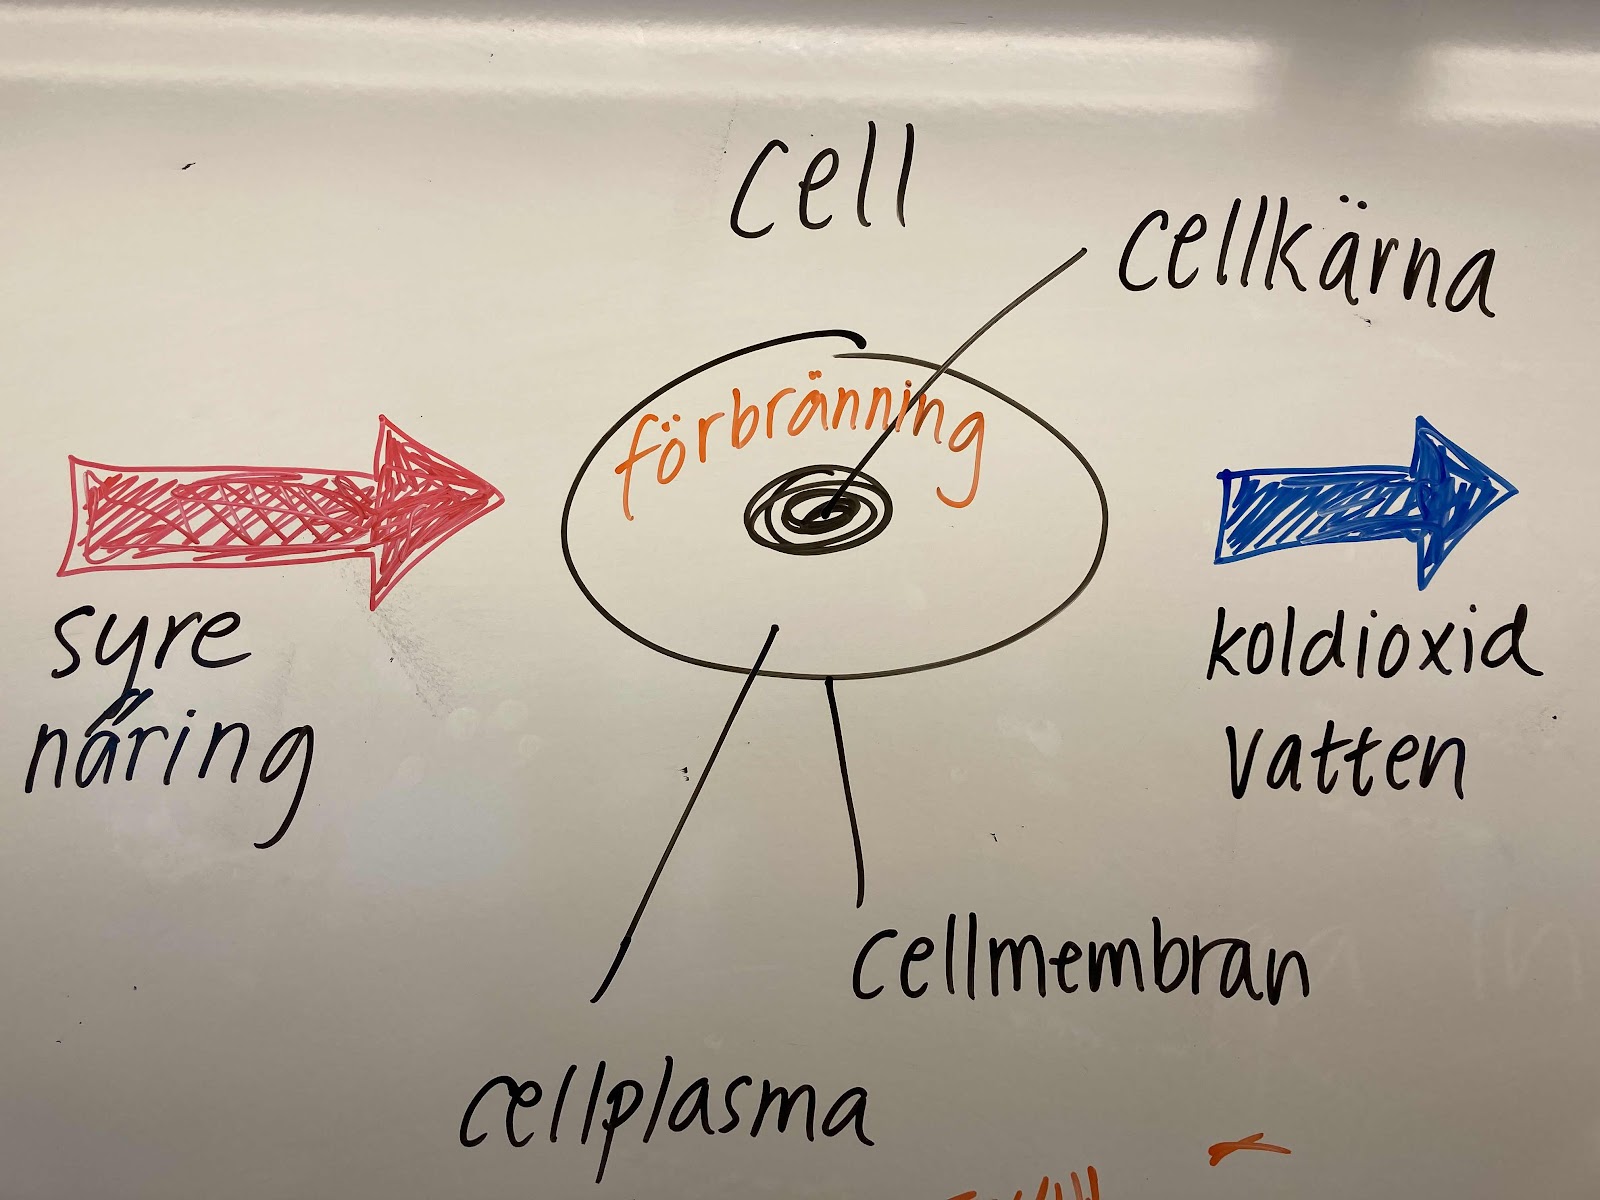 cell
cellkärna
förbränning
syre
näring
koldioxid
vatten
cellmembran
cellplasma